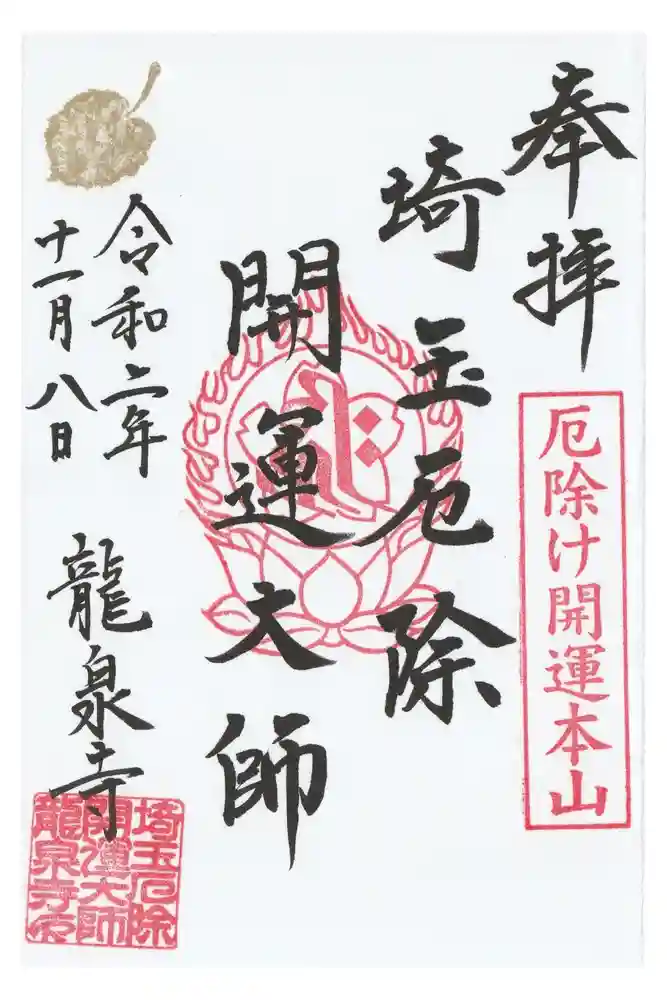 奉拝
厄除け開運本山
埼玉厄除
開運大師
令和二年
十一月八日
龍泉寺
埼玉厄除
開運大師
龍泉寺印